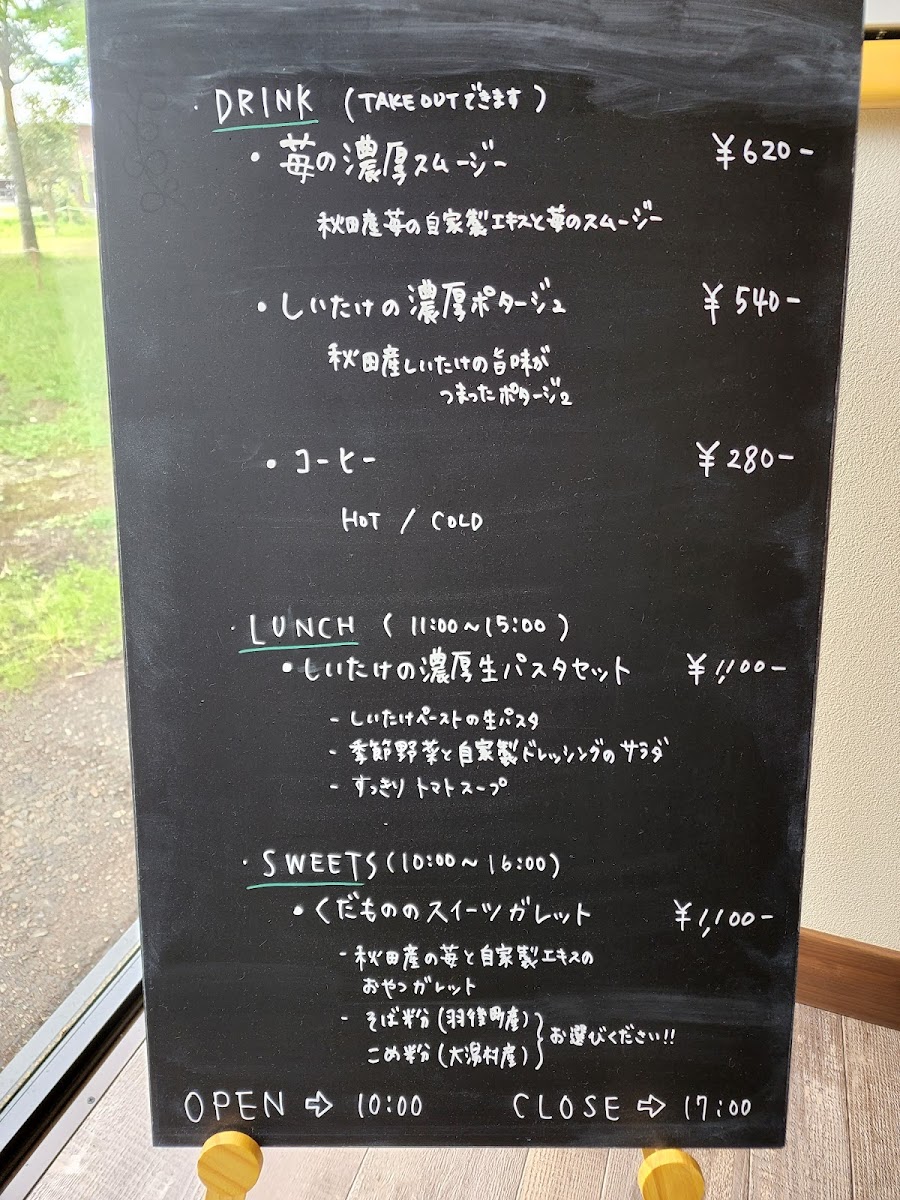 ・DRINK (TAKE OUTできます)
・苺の濃厚スムージー ¥620-
秋田産苺の自家製エキスと苺のスムージー
・しいたけの濃厚ポタージュ ¥540-
秋田産しいたけの旨味が
つまったポタージュ
・コーヒー ¥280-
HOT / COLD
・LUNCH (11:00~15:00)
・しいたけの濃厚生パスタセット ¥1,100-
- しいたけペーストの生パスタ
- 季節野菜と自家製ドレッシングのサラダ
- すっきりトマトスープ
・SWEETS (10:00~16:00)
・くだもののスイーツガレット ¥1,100-
- 秋田産の苺と自家製エキスの
おやつガレット
- そば粉(羽後町産)
こめ粉(大潟村産) } お選びください!!
OPEN ⇨ 10:00 CLOSE ⇨ 17:00